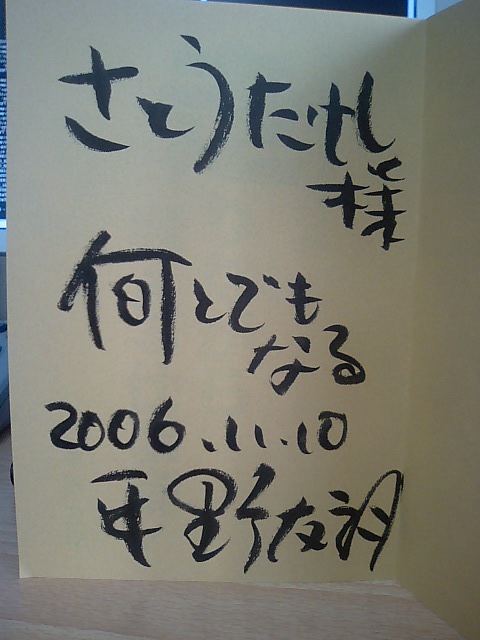 さとうたけし
様
何とでも
なる
2006.11.10
平野友朗